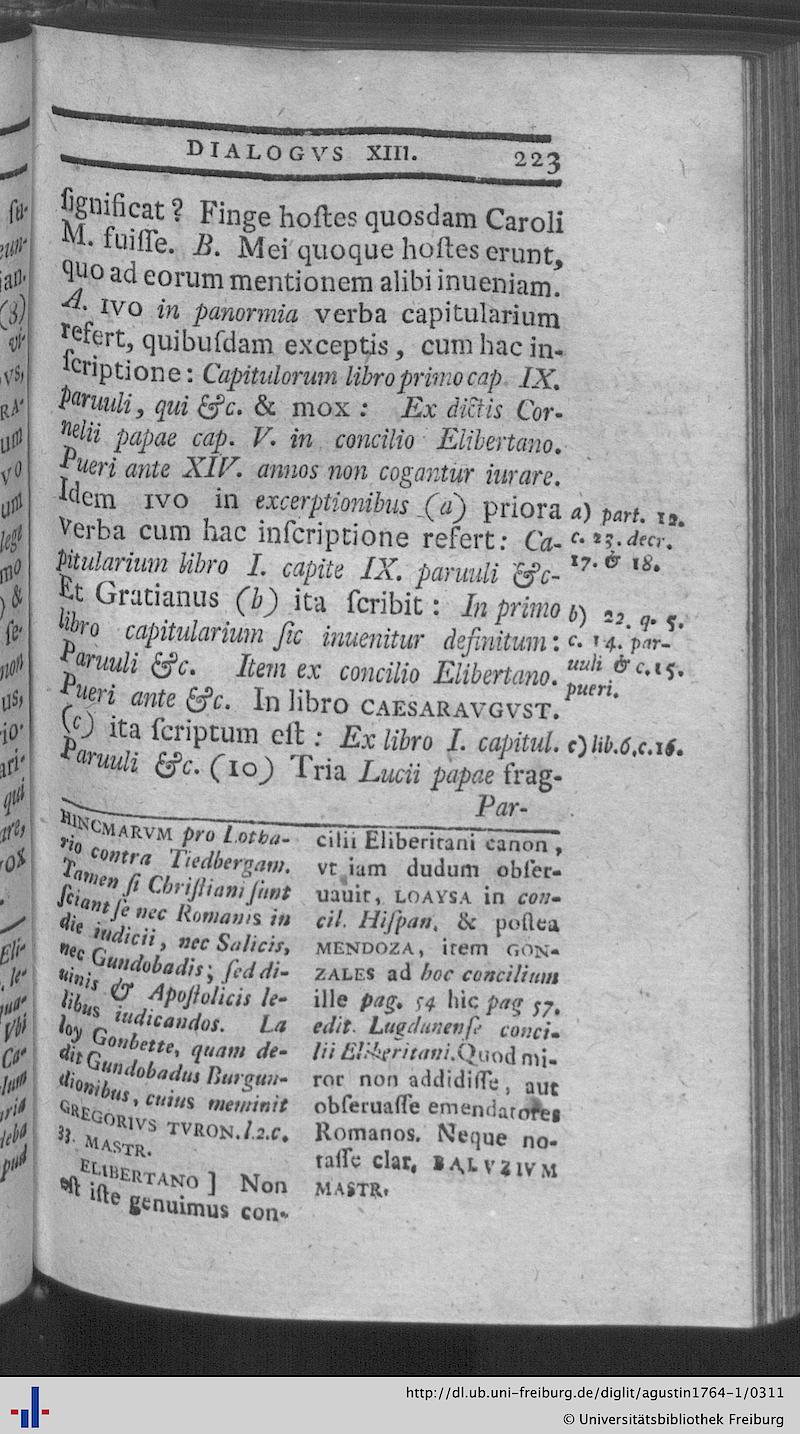 DIALOGVS XIII. 223
ſignificat? Finge hoſtes quosdam Caroli
M. fuiſſe. B. Mei quoque hoſtes erunt,
quo ad eorum mentionem alibi inueniam.
A. IVO in panormia verba capitularium
refert, quibuſdam exceptis, cum hac in-
ſcriptione: Capitulorum libro primo cap IX.
paruuli, qui &c. & mox: Ex dictis Cor-
nelii papae cap. V. in concilio Elibertano.
Pueri ante XIV. annos non cogantur iurare.
Idem IVO in excerptionibus (a) priora
verba cum hac inſcriptione refert: Ca-
pitularium libro I. capite IX. paruuli &c-
Et Gratianus (b) ita ſcribit: In primo
libro capitularium ſic inuenitur definitum:
Paruuli &c. Item ex concilio Elibertano.
Pueri ante &c. In libro CAESARAVGVST.
(c) ita ſcriptum eſt: Ex libro I. capitul.
Paruuli &c. (10) Tria Lucii papae frag-
Par-
a) part. 12.
c. 23. decr.
17. & 18.
b) 22. q. 5.
c. 14. par-
uuli & c. 15.
pueri.
c) lib. 6. c. 16.
HINCMARVM pro Lotha-
rio contra Tiedbergam.
Tamen ſi Chriſtiani ſunt
ſciant ſe nec Romanis in
die iudicii, nec Salicis,
nec Gundobadis; ſed di-
uinis & Apoſtolicis le-
libus iudicandos. La
loy Gonbette, quam de-
dit Gundobadus Burgun-
dionibus, cuius meminit
GREGORIVS TVRON. l. 2. c.
33. MASTR.
ELIBERTANO ] Non
eſt iſte genuimus con-
cilii Eliberitani canon,
vt iam dudum obſer-
uauit, LOAYSA in con-
cil. Hiſpan. & poſtea
MENDOZA, item GON-
ZALES ad hoc concilium
ille pag. 54 hic pag 57.
edit. Lugdunenſe conci-
lii Eliberitani. Quod mi-
ror non addidiſſe, aut
obſeruaſſe emendatores
Romanos. Neque no-
taſſe clar. BALVZIVM
MASTR.
http://dl.ub.uni-freiburg.de/diglit/agustin1764-1/0311
© Universitätsbibliothek Freiburg